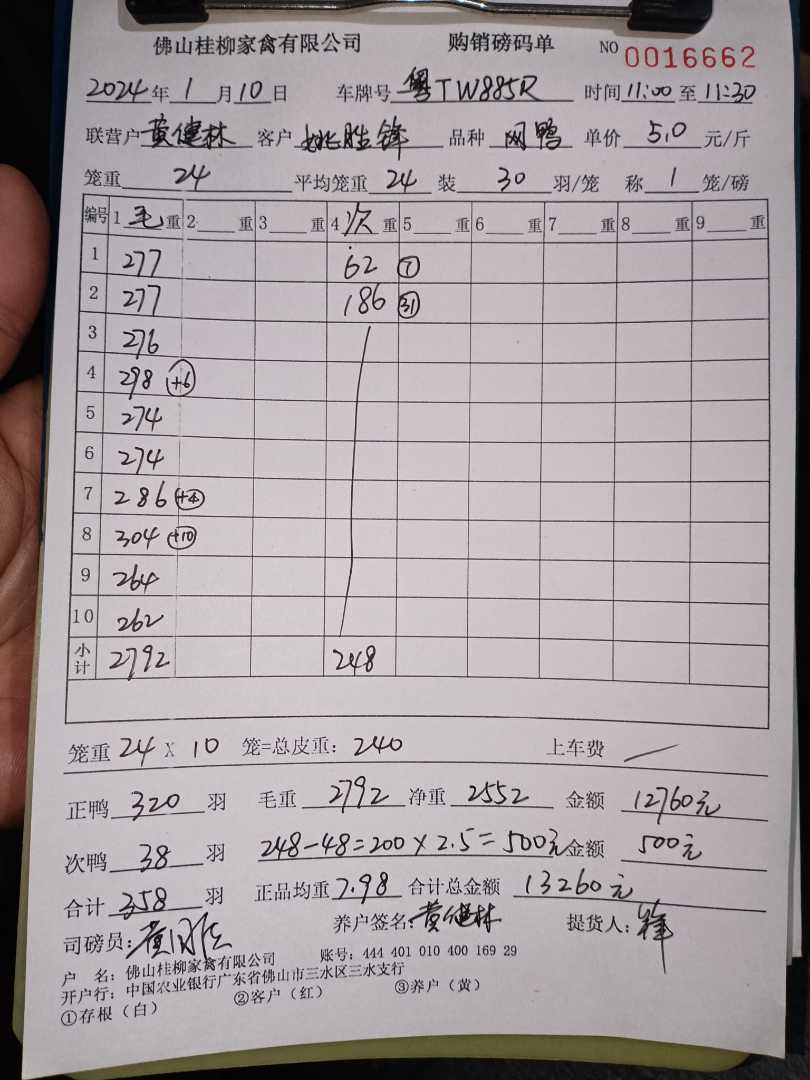 佛山桂柳家禽有限公司 购销磅码单 NO 0016662
2024年1月10日 车牌号 粤TW885R 时间11:00至11:30
联营户 黄健林 客户 姚胜锋 品种 网鸭 单价 5.0 元/斤
笼重 24 平均笼重 24 装 30 羽/笼 称 1 笼/磅
编号 1 毛 重 2 重 3 重 4 次 重 5 重 6 重 7 重 8 重 9 重
1 277 62 (7)
2 277 186 (31)
3 276
4 298 (+6)
5 274
6 274
7 286 (+4)
8 304 (+10)
9 264
10 262
小计 2792 248
笼重 24 X 10 笼=总皮重: 240 上车费
正鸭 320 羽 毛重 2792 净重 2552 金额 12760元
次鸭 38 羽 248-48=200×2.5=500元 金额 500元
合计 358 羽 正品均重 7.98 合计总金额 13260元
司磅员: 养户签名: 黄健林 提货人: 锋
户 名: 佛山桂柳家禽有限公司 账号: 444 401 010 400 169 29
开户行: 中国农业银行广东省佛山市三水区三水支行
①存根（白） ②客户（红） ③养户（黄）